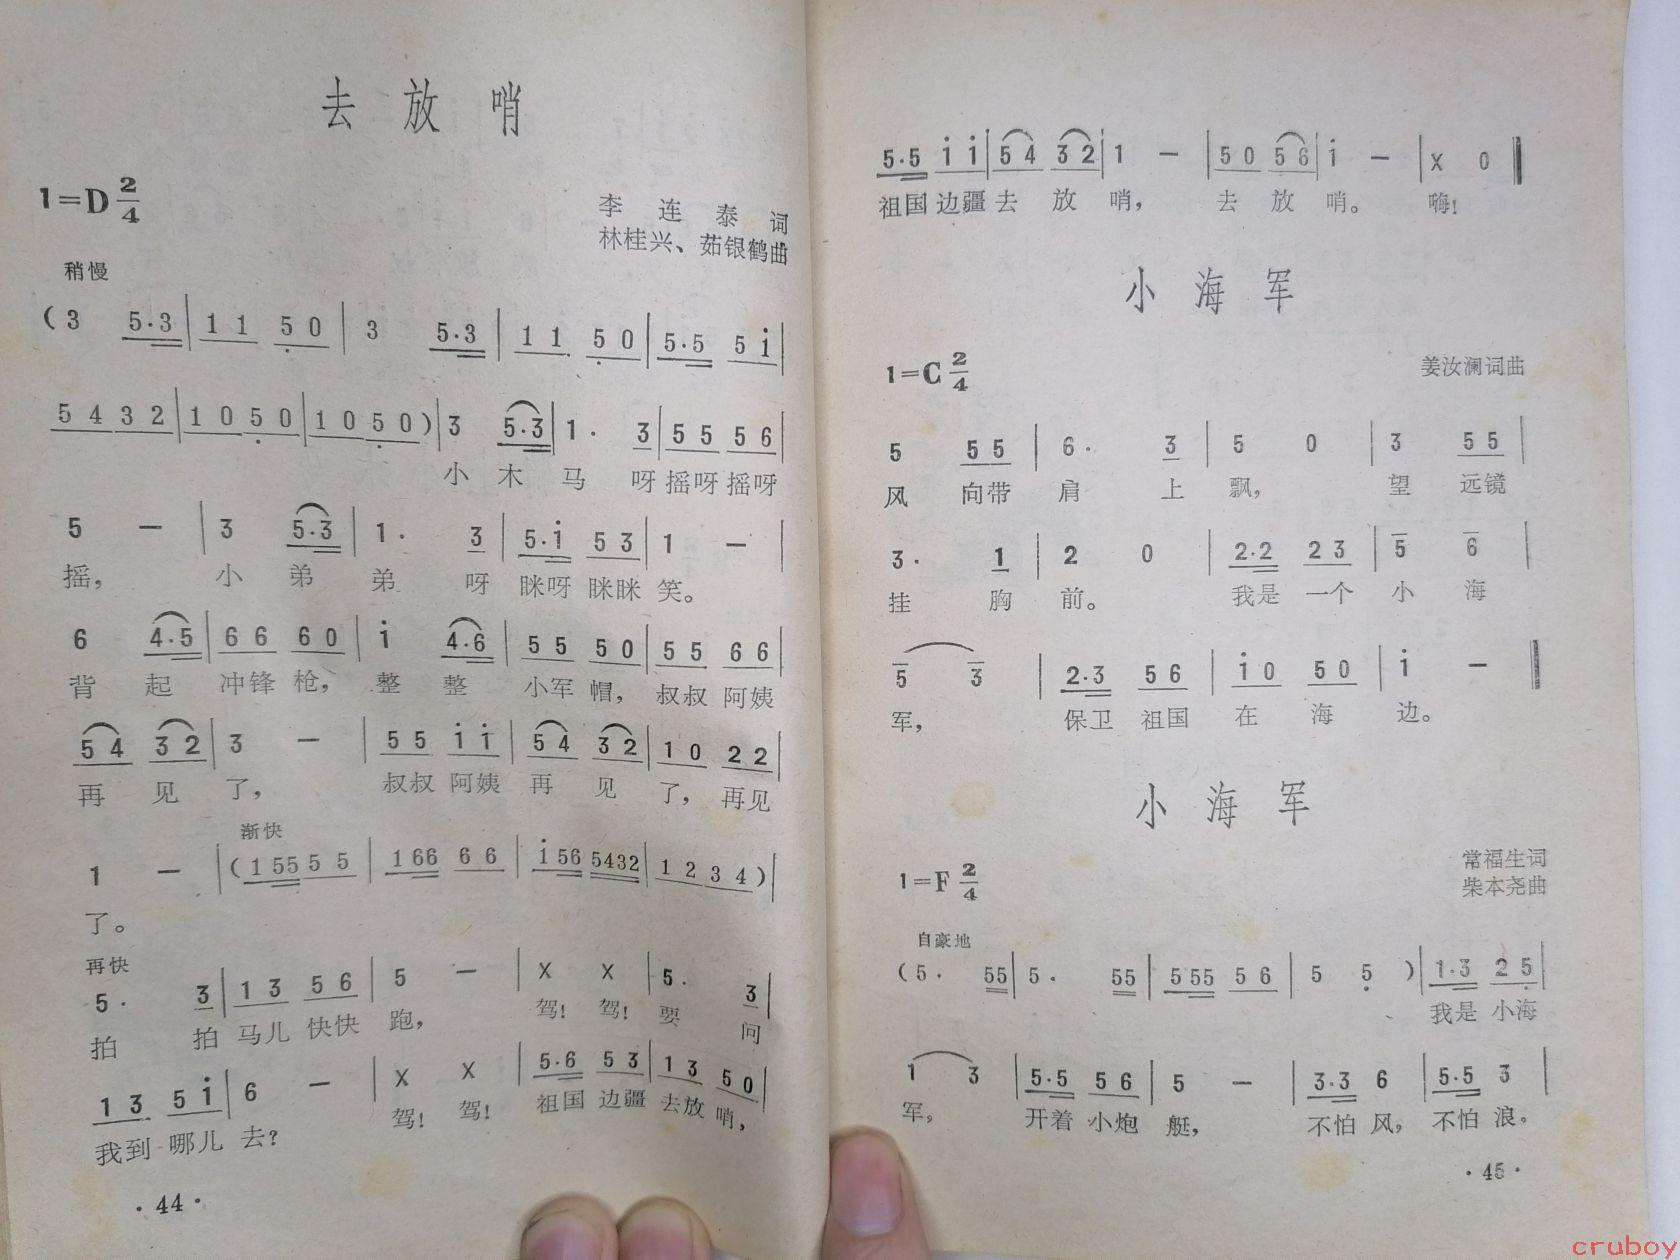 去放哨
1=D 2/4
李连泰词
林桂兴、茹银鹤曲
稍慢
(3 5·3 | 1 1 5̣ 0 | 3 5·3 | 1 1 5̣ 0 | 5·5 5 i |
5 4 3 2 | 1 0 5̣ 0 | 1 0 5̣ 0) | 3 5·3 | 1· 3 | 5 5 5 6 |
小 木 马 呀 摇呀 摇呀
5 — | 3 5·3 | 1· 3 | 5·i 5 3 | 1 — |
摇, 小 弟 弟 呀 眯呀 眯眯 笑。
6 4·5 | 6 6 6 0 | i 4·6 | 5 5 5 0 | 5 5 6 6 |
背 起 冲锋 枪, 整 整 小军 帽, 叔叔 阿姨
5 4 3 2 | 3 — | 5 5 i i | 5 4 3 2 | 1 0 2 2 |
再 见 了, 叔叔 阿姨 再 见 了, 再见
渐快
1 — | (1 55 5 5 | 1 66 6 6 | i 56 5432 | 1 2 3 4) |
了。
再快
5· 3 | 1 3 5 6 | 5 — | X X | 5· 3 |
拍 拍 马儿 快快 跑, 驾! 驾! 要 问
1 3 5 i | 6 — | X X | 5·6 5 3 | 1 3 5 0 |
我到 哪儿 去? 驾! 驾! 祖国 边疆 去放 哨,
·44·
5·5 i i | 5 4 3 2 | 1 — | 5 0 5 6 | i — | X 0 ‖
祖国 边疆 去 放 哨, 去 放 哨。 嗨!
小海军
1=C 2/4
姜汝澜词曲
5 5 5 | 6· 3 | 5 0 | 3 5 5 |
风 向带 肩 上 飘, 望 远镜
3· 1 | 2 0 | 2·2 2 3 | 5̄ 6̄ |
挂 胸 前。 我是 一个 小 海
5̄ 3̄ | 2·3 5 6 | i 0 5 0 | i — ‖
军, 保卫 祖国 在 海 边。
小海军
1=F 2/4
常福生词
柴本尧曲
自豪地
(5· 55 | 5· 55 | 5 55 5 6 | 5 5̣) | 1·3 2 5̣ |
我是 小海
1 3 | 5·5 5 6 | 5 — | 3·3 6 | 5·5 3 |
军, 开着 小炮 艇, 不怕 风, 不怕 浪。
·45·
cruboy